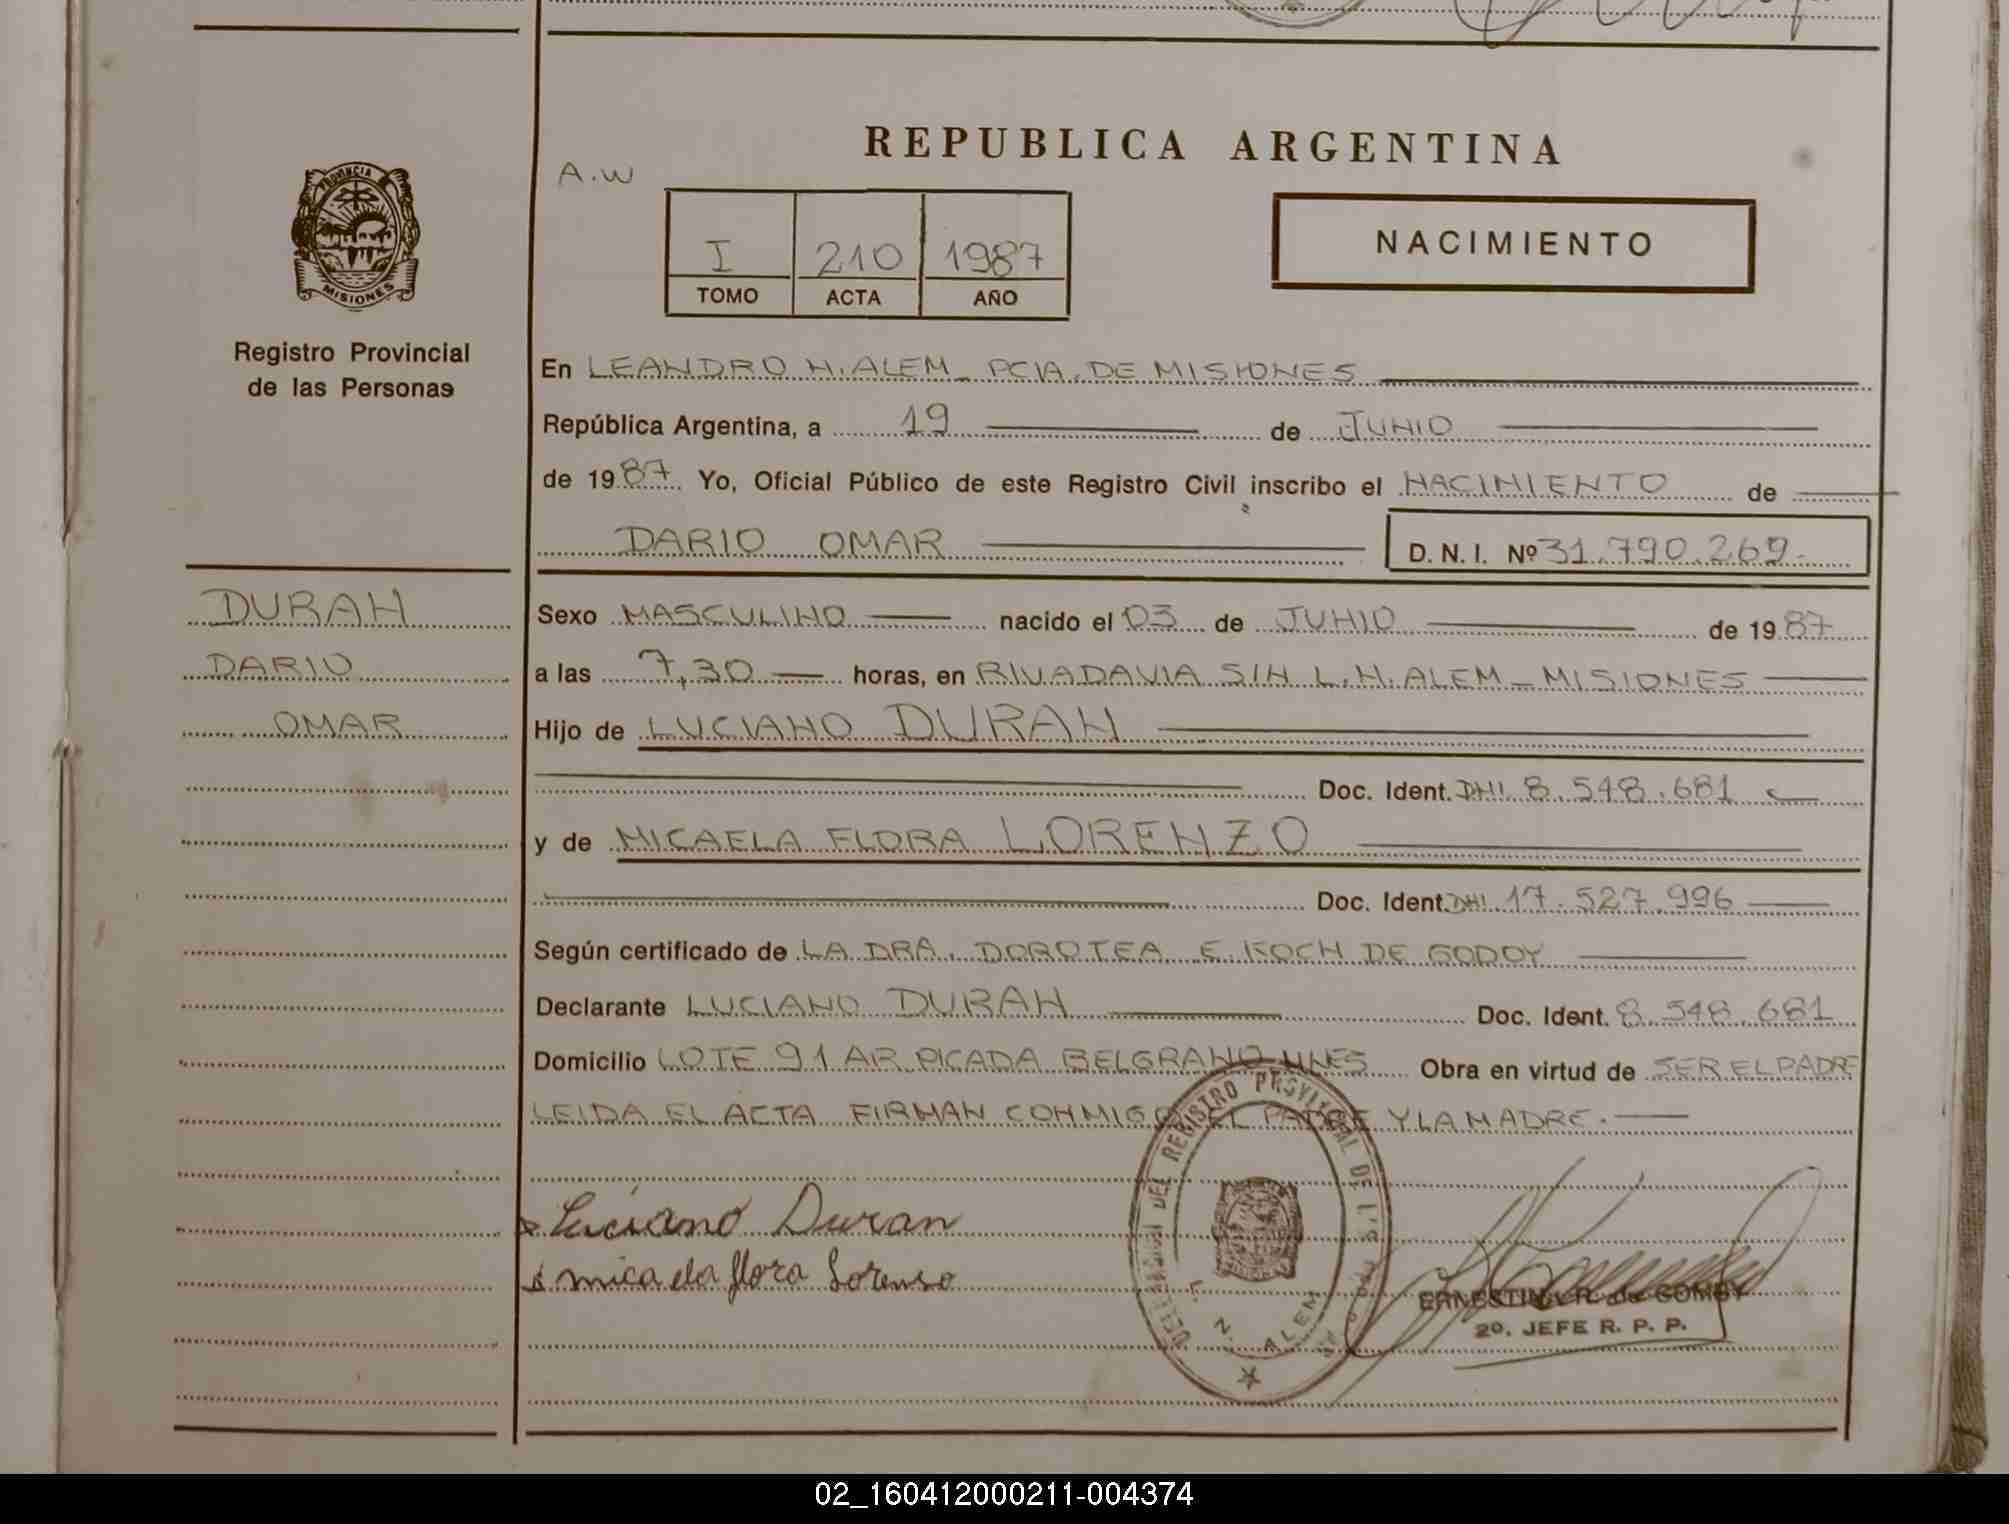 REPUBLICA ARGENTINA
A.W
PROVINCIA
MISIONES
I 210 1987
TOMO ACTA AÑO
NACIMIENTO
Registro Provincial
de las Personas
En LEANDRO N. ALEM - PCIA. DE MISIONES
República Argentina, a 19 de JUNIO
de 1987. Yo, Oficial Público de este Registro Civil inscribo el NACIMIENTO de
DARIO OMAR D. N. I. Nº 31.790.269.-
DURAN
DARIO
OMAR
Sexo MASCULINO nacido el 03 de JUNIO de 1987
a las 7,30 horas, en RIVADAVIA S/N L.N. ALEM - MISIONES
Hijo de LUCIANO DURAN
Doc. Ident. DNI. 8.548.681
y de MICAELA FLORA LORENZO
Doc. Ident. DNI. 17.527.996
Según certificado de LA DRA. DOROTEA E. KOCH DE GODOY
Declarante LUCIANO DURAN Doc. Ident. 8.548.681
Domicilio LOTE 91 AR. PICADA BELGRANO MNES Obra en virtud de SER EL PADRE
LEIDA EL ACTA FIRMAN CONMIGO EL PADRE Y LA MADRE.
Luciano Duran
micaela flora Lorenso
DEL REGISTRO PROVINCIAL DE
L. N. ALEM
ERNESTINA R. de GOMEZ
2º. JEFE R. P. P.
02_160412000211-004374